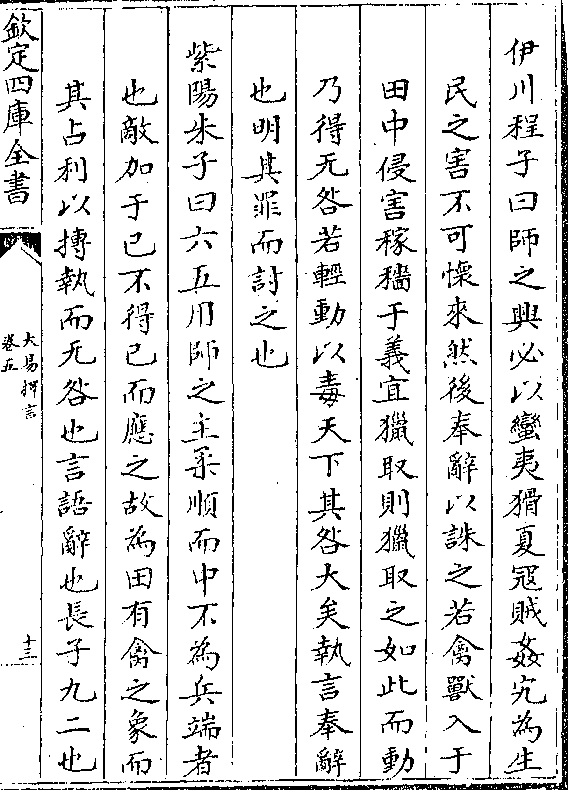 伊川程子曰師之興必以蠻夷猾夏冦賊姦宄為生
民之害不可懷來然後奉辭以誅之若禽獸入于
田中侵害稼穡于義宜獵取則獵取之如此而動
乃得无咎若輕動以毒天下其咎大矣執言奉辭
也明其罪而討之也
紫陽朱子曰六五用師之主柔順而中不為兵端者
也敵加于已不得已而應之故為田有禽之象而
其占利以摶執而无咎也言語辭也長子九二也
欽定四庫全書
大易擇言
卷五
十三